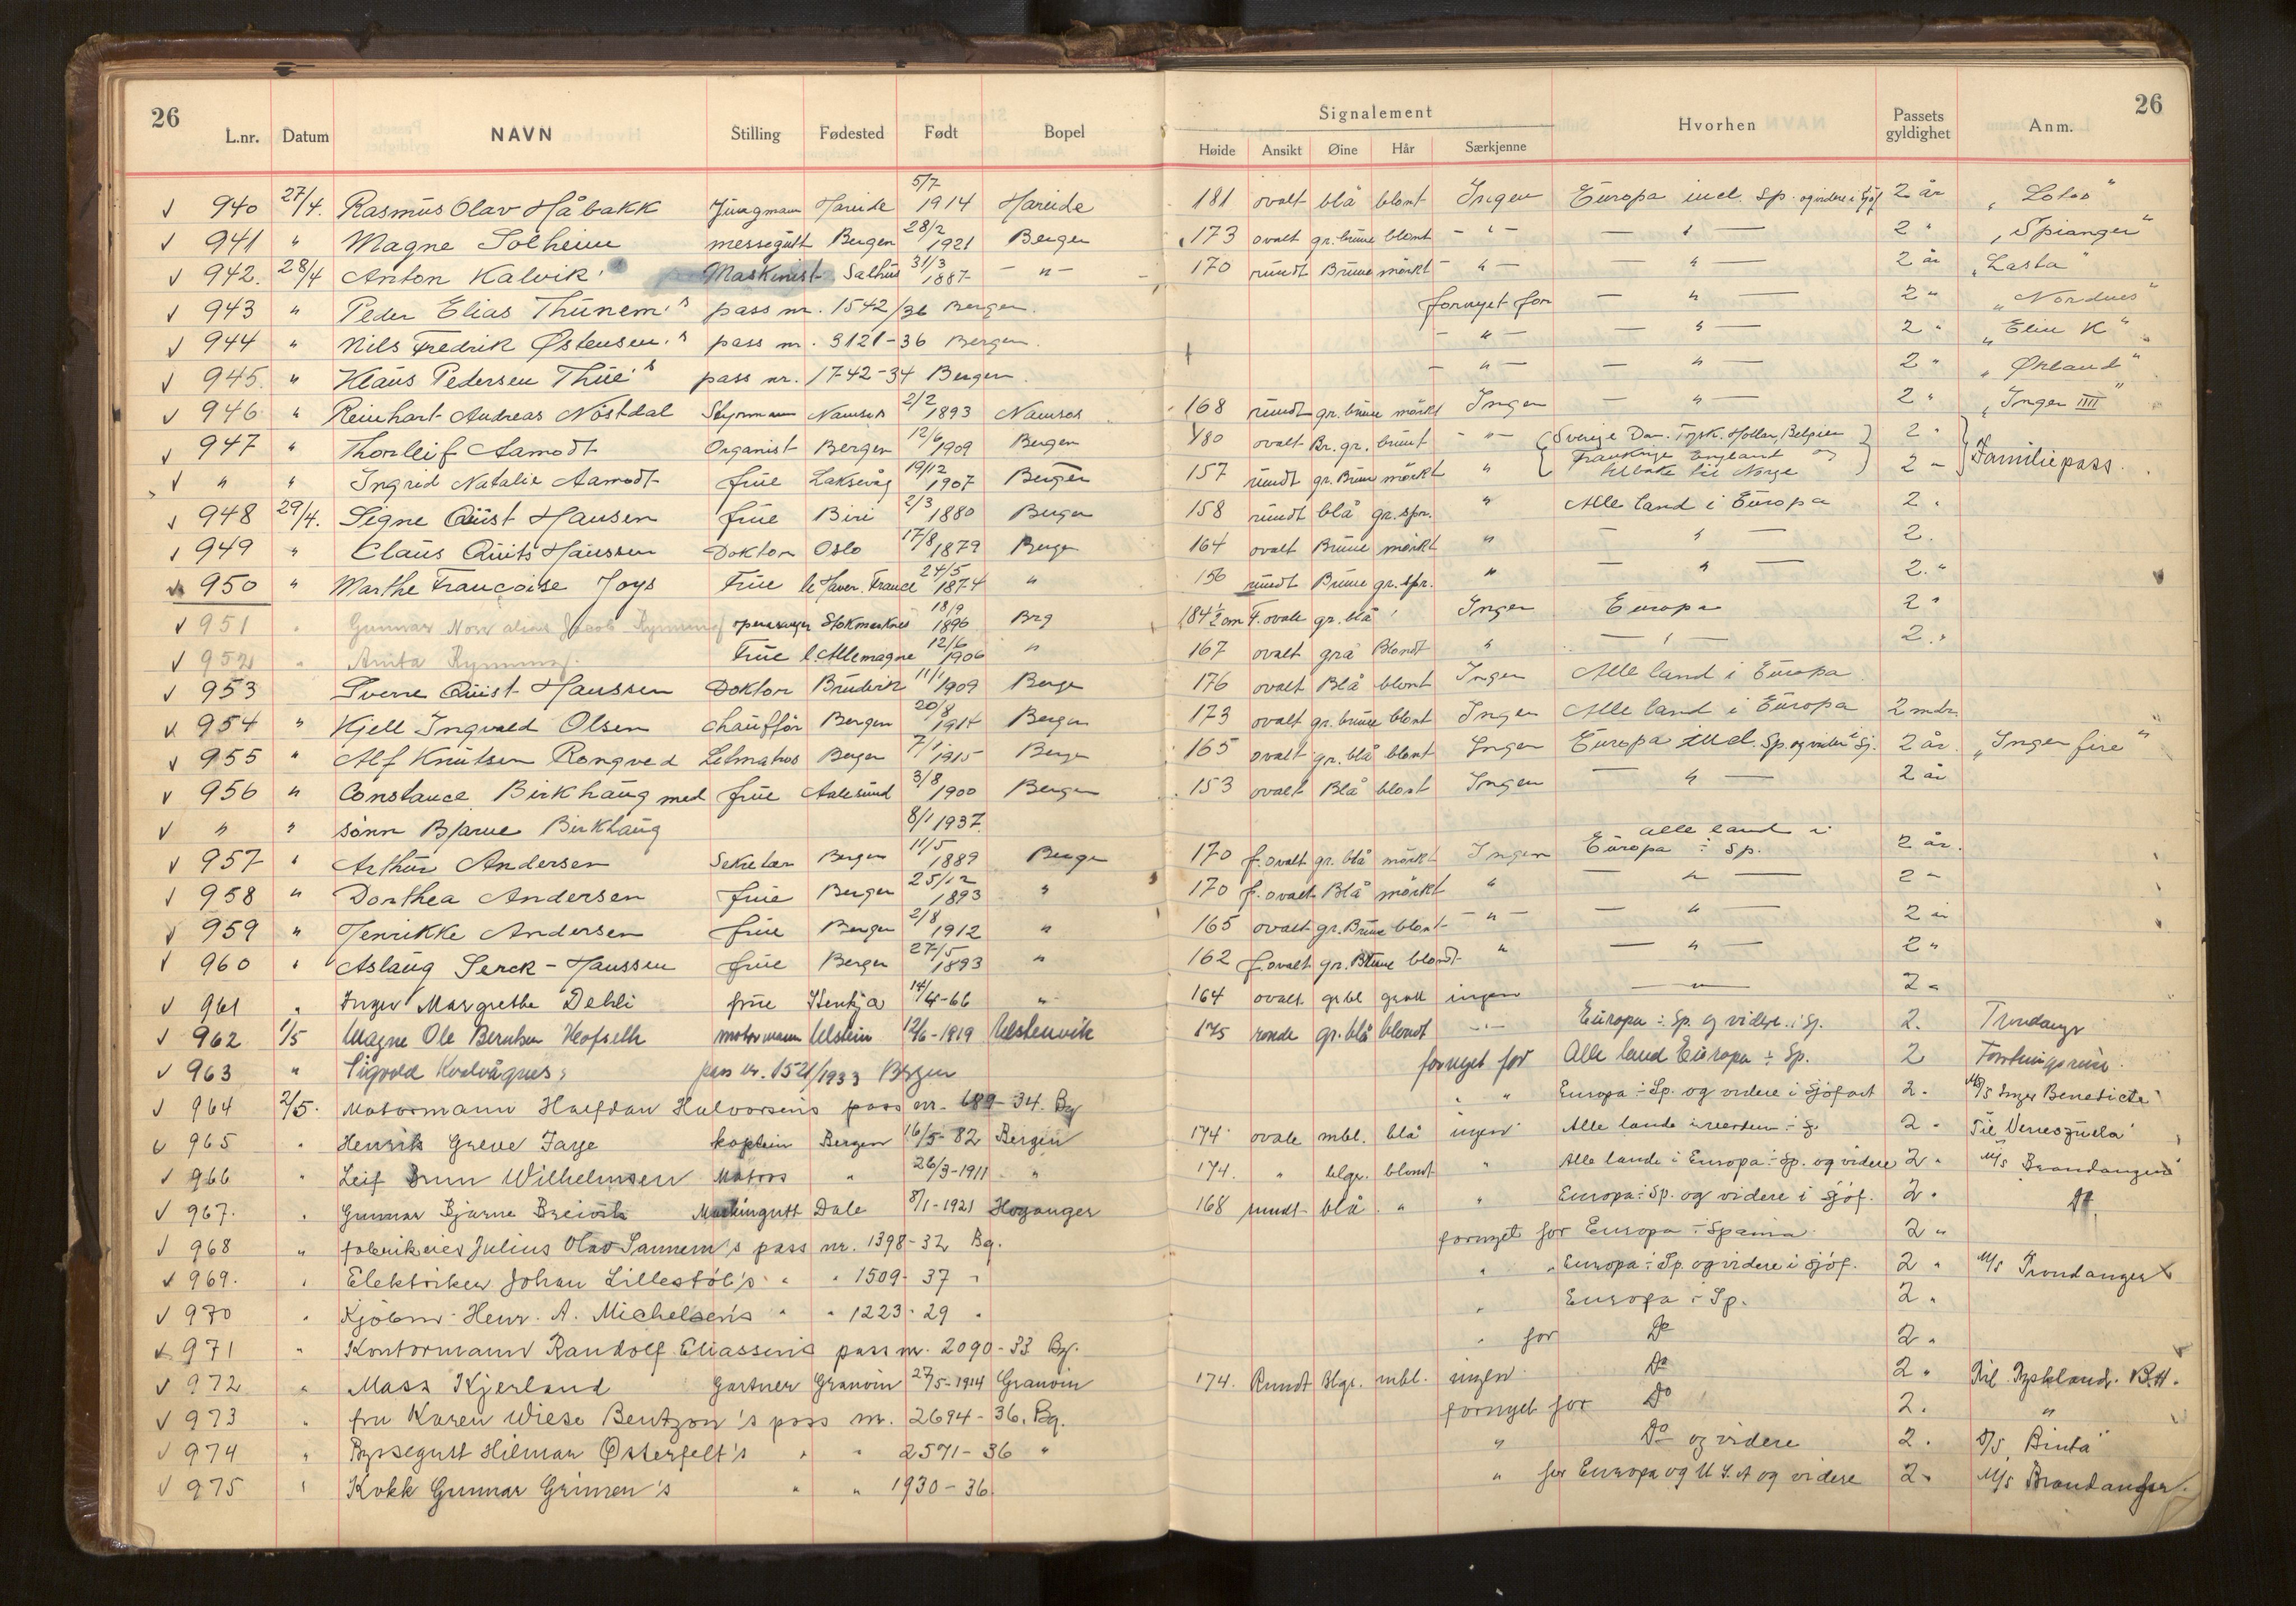 26
26
L.nr. Datum NAVN Stilling Fødested Født Bopel Signalement Høide Ansikt Øine Hår Særkjenne Hvorhen Passets gyldighet Anm.
940 27/4. Rasmus Olav Håbakk Jungmann Hareide 5/7 1914 Hareide 181 ovalt blå blont Ingen Europa incl. Sp. og videre i Sjöf 2 år „Lotos"
941 " Magne Solheim messegutt Bergen 28/2 1921 Bergen 173 ovalt gr. brune blont - " - — " — 2 " „Spianger"
942. 28/4 Anton Kalvik Maskinist Salhus 31/3 1887 - " - 170 rundt Brune mörkt - " - — " — 2 år „Lasta"
943 " Peder Elias Thunem's pass nr. 1542/36 Bergen. fornyet for — " — 2 " „Nordnes"
944 " Nils Fredrik Østensen's pass nr. 3121-36 Bergen. - " - — " — 2 " „Elin K"
945. " Klaus Pedersen Thue's pass nr. 1742-34 Bergen. - " - — " — 2 " „Ørland"
946 " Reinhart Andreas Nöstdal Styrmann Namsos 2/2 1893 Namsos 168 rundt gr. brune mörkt Ingen — " — 2 " „Inger IIII"
947 " Thorleif Aamodt Organist Bergen 12/6 1909 Bergen 180 ovalt Br. gr. brunt - " - Sverige Dan. Tysk. Hollan, Belgien 2 "
" " Ingrid Natalie Aamodt frue Laksevåg 19/12 1907 Bergen 157 rundt gr. Brune mörkt " Frankrige England og tilbake til Norge 2 - Familiepass.
948 29/4. Signe Quist Hansen frue Biri 2/3 1880 Bergen 158 rundt blå gr. spr. " Alle land i Europa 2 "
949 " Claus Quits Hanssen Doktor Oslo 17/8 1879 Bergen 164 ovalt Brune mörkt " — " — 2.
950 " Marthe Francoise Joys Frue le Haver. France 24/5 1874 " 156 rundt Brune gr. spr. " — " — 2. "
951 " Gunnar operasanger Stokmarknes 18/9 1896 Brg 184½ cm F. ovale gr. blå Ingen Europa 2 "
952 " Anita Frue l. Allemagne 12/6 1906 " 167 ovalt grå Blondt " — " — 2. "
953 Sverre Quist Hanssen Doktor 11/1 1909 Bergen 176 ovalt Blå blont Ingen Alle land i Europa
954 " Kjell Ingvald Olsen chaufför Bergen 20/8 1914 Bergen 173 ovalt gr. brune blont Ingen Alle land i Europa 2 mdr.
955 " Alf Knutsen Rongved Letmatros Bergen 7/1 1915 Bergen 165 ovalt gr. blå blont Ingen Europa incl. Sp. og videre i Sj. 2 år. „Inger fire"
956 " Constance Birkhaug med frue Aalesund 3/8 1900 Bergen 153 ovalt Blå blont Ingen — " — 2 år
" " sönn Bjarne Birkhaug 8/1 1937.
957 " Arthur Andersen Sekretær Bergen 11/5 1889 Bergen 170 f. ovalt gr. blå mörkt Ingen alle land i Europa ÷ Sp. 2 år.
958 " Dorthea Andersen frue Bergen 25/12 1893 " 170 f. ovalt Blå mörkt " — " — 2 -
959 " Henrikke Andersen frue Bergen 2/8 1912 " 165 ovalt gr. Brune blont - " - — " — 2 år
960 " Aslaug Serck-Hanssen frue Bergen 27/5 1893 " 162 f. ovalt gr. Brune blondt " — " — 2 "
961 " Inger Margrethe Dehli frue 14/4-66 " 164 ovalt gr bl ingen — " — 2 "
962 1/5 Magne Ole Berntsen Hofseth motormann Ulstein 12/6-1919 Ulstenvik 175 runde gr. blå blondt - " - Europa ÷ Sp. og videre i Sj. 2. Trondanger
963 " Sigvald Kvalvågnes pass nr. 1521/1933 Bergen fornyet for Alle land Europa ÷ Sp. 2
964 2/5. Motormann Halfdan Halvorsens pass nr. 689-34. Bg " " Europa ÷ Sp. og videre i sjöfart 2. M/S Inger Benedicte"
965 " Henrik Greve Faye kaptein Bergen 16/5-82 Bergen 174 ovale mbl. blå ingen Alle lande 2 " Til Venezuela
966 " Leif Brun Wilhelmsen Matros " 26/3-1911 " 174. " blgr. blondt " Alle lande i Europa ÷ Sp. og videre 2 " M/S Brandanger"
967. " Gunnar Bjarne Breivik Dale 8/1-1921 Høyanger 168 rundt blå " " Europa ÷ Sp. og videre i sjöf. 2. Do
968 " fabrikeier Julius Olav Sannem's pass nr. 1398-32 Bg. fornyet for Europa ÷ Spania 2 "
969. " Elektriker Johan Lillestöl's " " 1509-37 " " " Europa ÷ Sp. og videre i sjöf. 2 " M/S Trondanger
970 " Kjöbm. Henr. A. Michelsen's " " 1223-29 " " Europa ÷ Sp. 2 "
971 " Kontormann Randolf Eliassens pass nr. 2090-33 Bg. " for Do 2 "
972 " Mass Kjerland Gartner Granvin 27/5-1914 Granvin 174. Rundt Blgr. mbl. ingen Do 2 " Til Tyskland.
973 " fru Karen Wiese Bentzon's pass nr. 2694-36. Bg. fornyet for Do 2. "
974 " Byssegutt Hilmar Østerfelt's " " 2571-36 " " Do og videre 2. D/S „Binta"
975 " Kokk Gunnar Grimen's " " 1930-36. " for Europa og U.S.A og videre 2. M/S Brandanger.